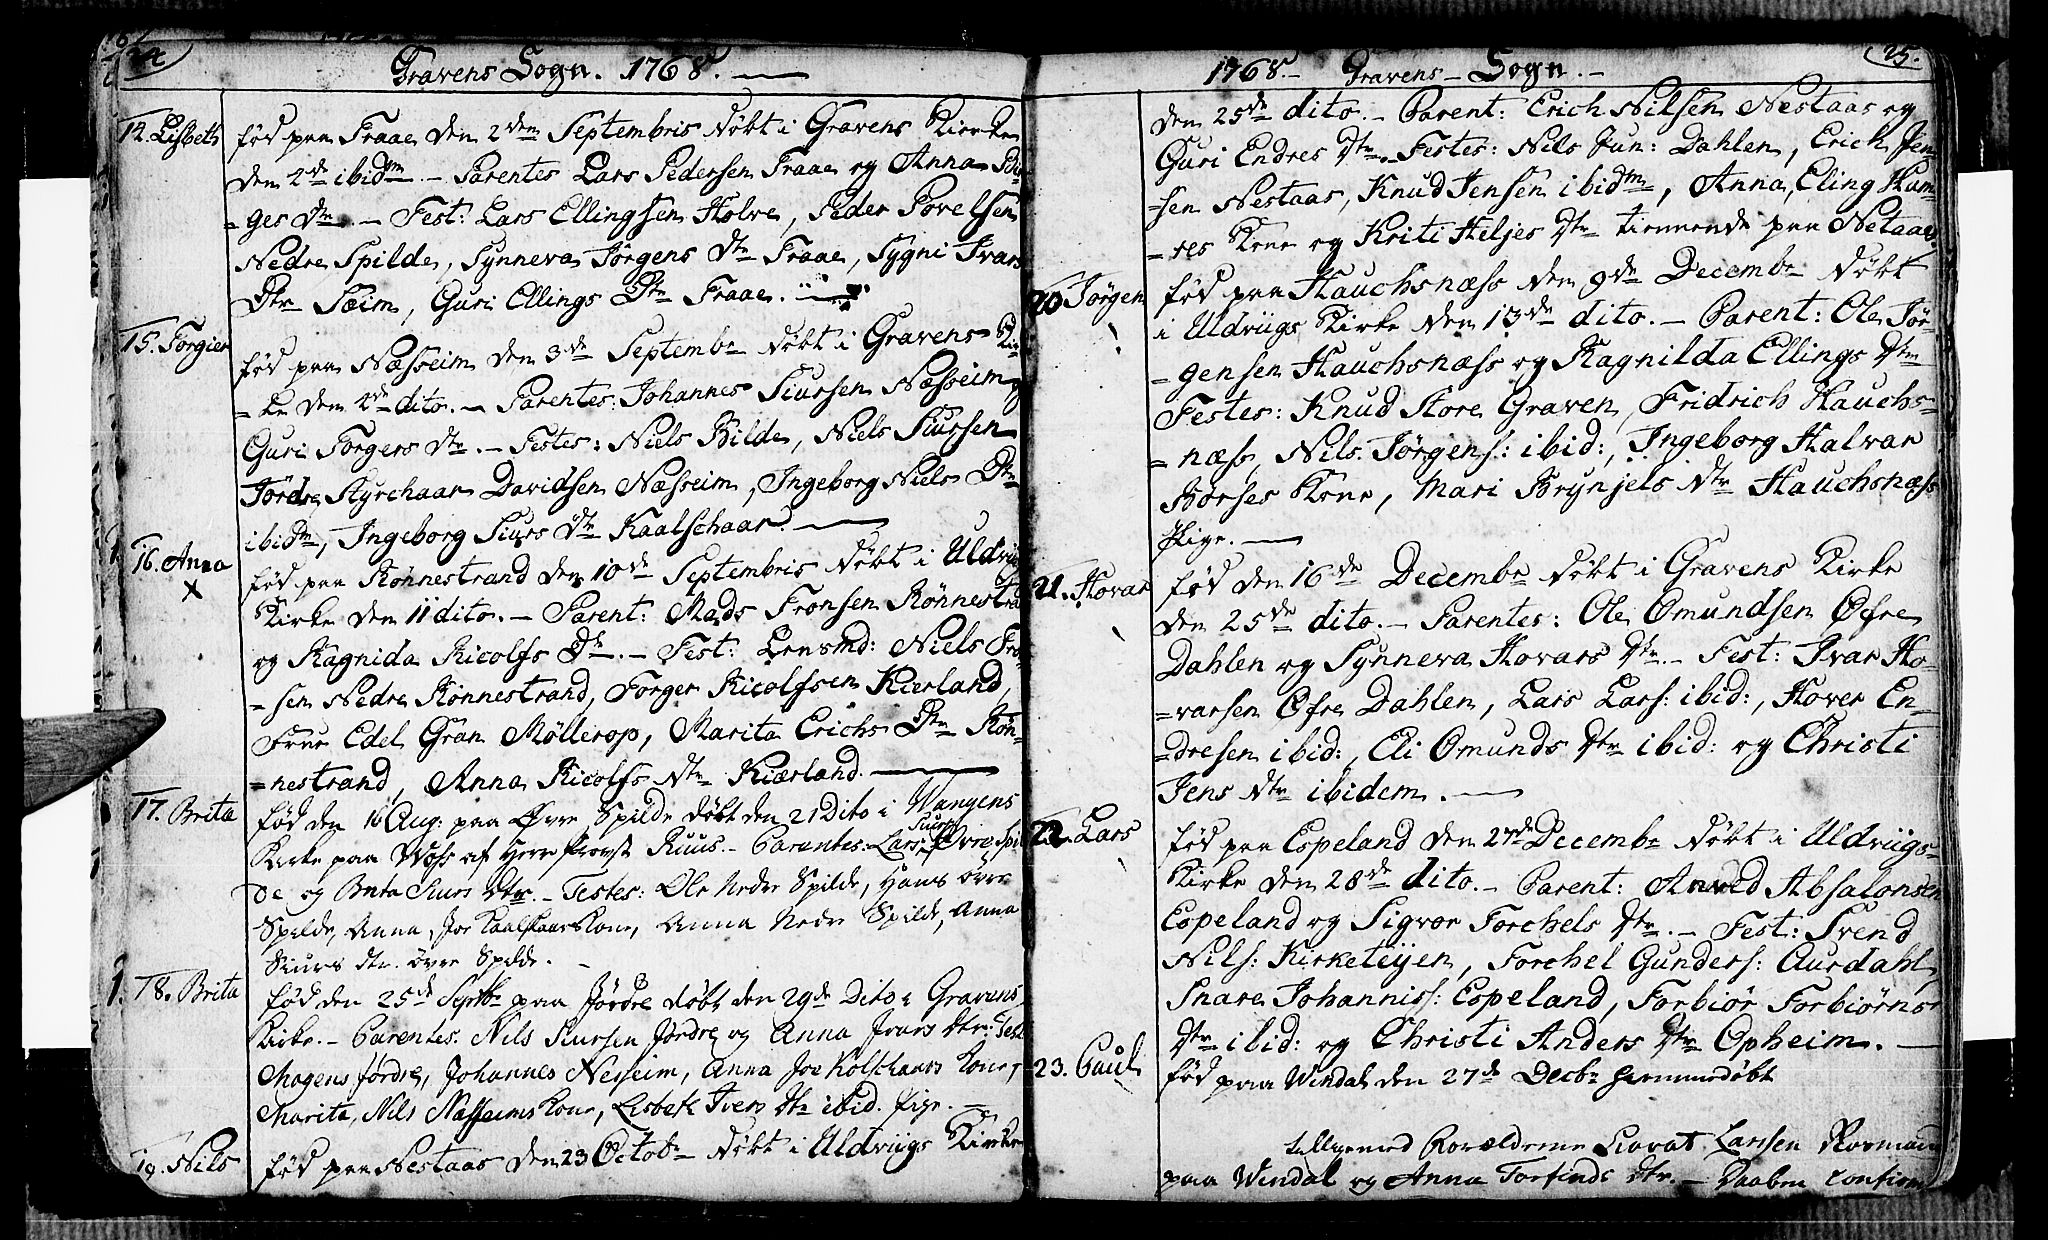 24
Gravens Sogn. 1768.
14. Lisbeth
fød paa Fraae den 2den Septembris døbt i Gravens Kierke
den 4de ibidm. - Parentes Lars Pedersen Fraae og Anna
=ges Dtr - Fest: Lars Ellingsen Holve, Peder Povelsen
Nedre Spilde, Synneva Jørgens Dtr Fraae, Sygni Ivars
Dtr Sæim, Guri Ellings Dtr Fraae.
15. Torgier
fød paa Næsseim den 3de Septembr døbt i Gravens Kir-
=ke den 4de dito. - Parentes: Johannes Siursen Næsseim og
Guri Torgers Dtr. - Festes: Niels Bilde, Niels Siursen
Jørdre, Styrchaar Davidsen Næsseim, Ingeborg Niels Dtr
ibidm, Ingeborg Siurs Dtr Kaalschaar.
16. Anna
fød paa Rønnestrand den 10de Septembris døbt i Uldviigs
Kirke den 11 dito. - Parent: Mads Fronsen Rønnestrand
og Ragnida Ricolfs Dtr. - Fest: Lensmd: Niels Fron-
=sen Nedre Rønnestrand, Torger Ricolfsen Kierland,
Frue Edel Gran Møllerop, Marita Erichs Dtr Røn-
=nestrand, Anna Ricolfs Dtr Kiærland.
17. Brita
fød den 16 Aug: paa Øvre Spilde døbt den 21 Dito i Vangens
Kirke paa Woss af Herr Provst Ruus. - Parentes: Lars Siurs: Øvre Spil
de og Brita Siurs Dtr. - Testes: Ole Nedre Spilde, Hans øvre
Spilde, Anna, Joe Kaalskaars Kone, Anna Nedre Spilde, Anna
Siurs dtr. övre Spilde.
18. Brita
fød den 25de Septbr paa Jördre døbt den 29de Dito i Gravens
Kirke. - Parentes. Nils Siursen Jördre og Anna Ivars Dtr. Test.
Mogens Jørdre, Johannes Nesseim, Anna Joe Kolschaars Kone,
Marita, Nils Næsseims Kone, Lisbeth Ivers Dtr ibid. pige.
19. Nils
fød paa Nestaas den 23 Octobr døbt i Uldviigs Kirke
25.
1768. Gravens - Sogn. -
den 25de dito. - Parent: Erich Nilsen Nestaas og
Guri Endres Dtr. Festes: Nils Jun: Dahlen, Erich Jen-
=sen Nestaas, Knud Jensen ibidm, Anna, Eling Ham-
=res Kone og Kriti Heljes Dtr tiennende paa Netaas
20 Jørgen
fød paa Hauchsnæss den 9de Decembr døbt
i Uldviigs Kirke den 13de dito. - Parent: Ole Jør-
=gensen Hauchsnæss og Ragnilda Ellings Dtr
Festes: Knud Store Graven, Fridrich Hauchs-
=næss, Nils Jørgens: ibid:, Ingeborg Halvar
Børses Kone, Mari Brynjels Dtr Hauchsnæss
Pige.
21. Hovar
fød den 16de Decembr døbt i Gravens Kirke
den 25de dito. - Parentes: Ole Omundsen Øfre
Dahlen og Synneva Hovars Dtr. - Fest: Ivar Ho-
=varsen Øfre Dahlen, Lars Lars: ibid:, Hover En-
=dresen ibid:, Eli Omunds Dtr ibid: og Christi
Jens Dtr ibidem.
22. Lars
fød paa Espeland den 27de Decembr døbt i Uldviigs
Kirke den 28de dito. - Parent: Anved Absalonsen
Espeland og Sigvor Torchels Dtr. - Fest: Svend
Nils: Kirketeijen, Torchel Gunders: Aurdahl,
Snare Johanniss: Espeland, Torbiör Torbiørns
Dtr ibid: og Christi Anders Dtr Opheim.
23. Paul
fød paa Windal den 27de Decbr hiemmedøbt
tilligemed Forældrene Siovat Larssen Huusmand
paa Windal og Anna Torfinds dtr. - Daaben confirm